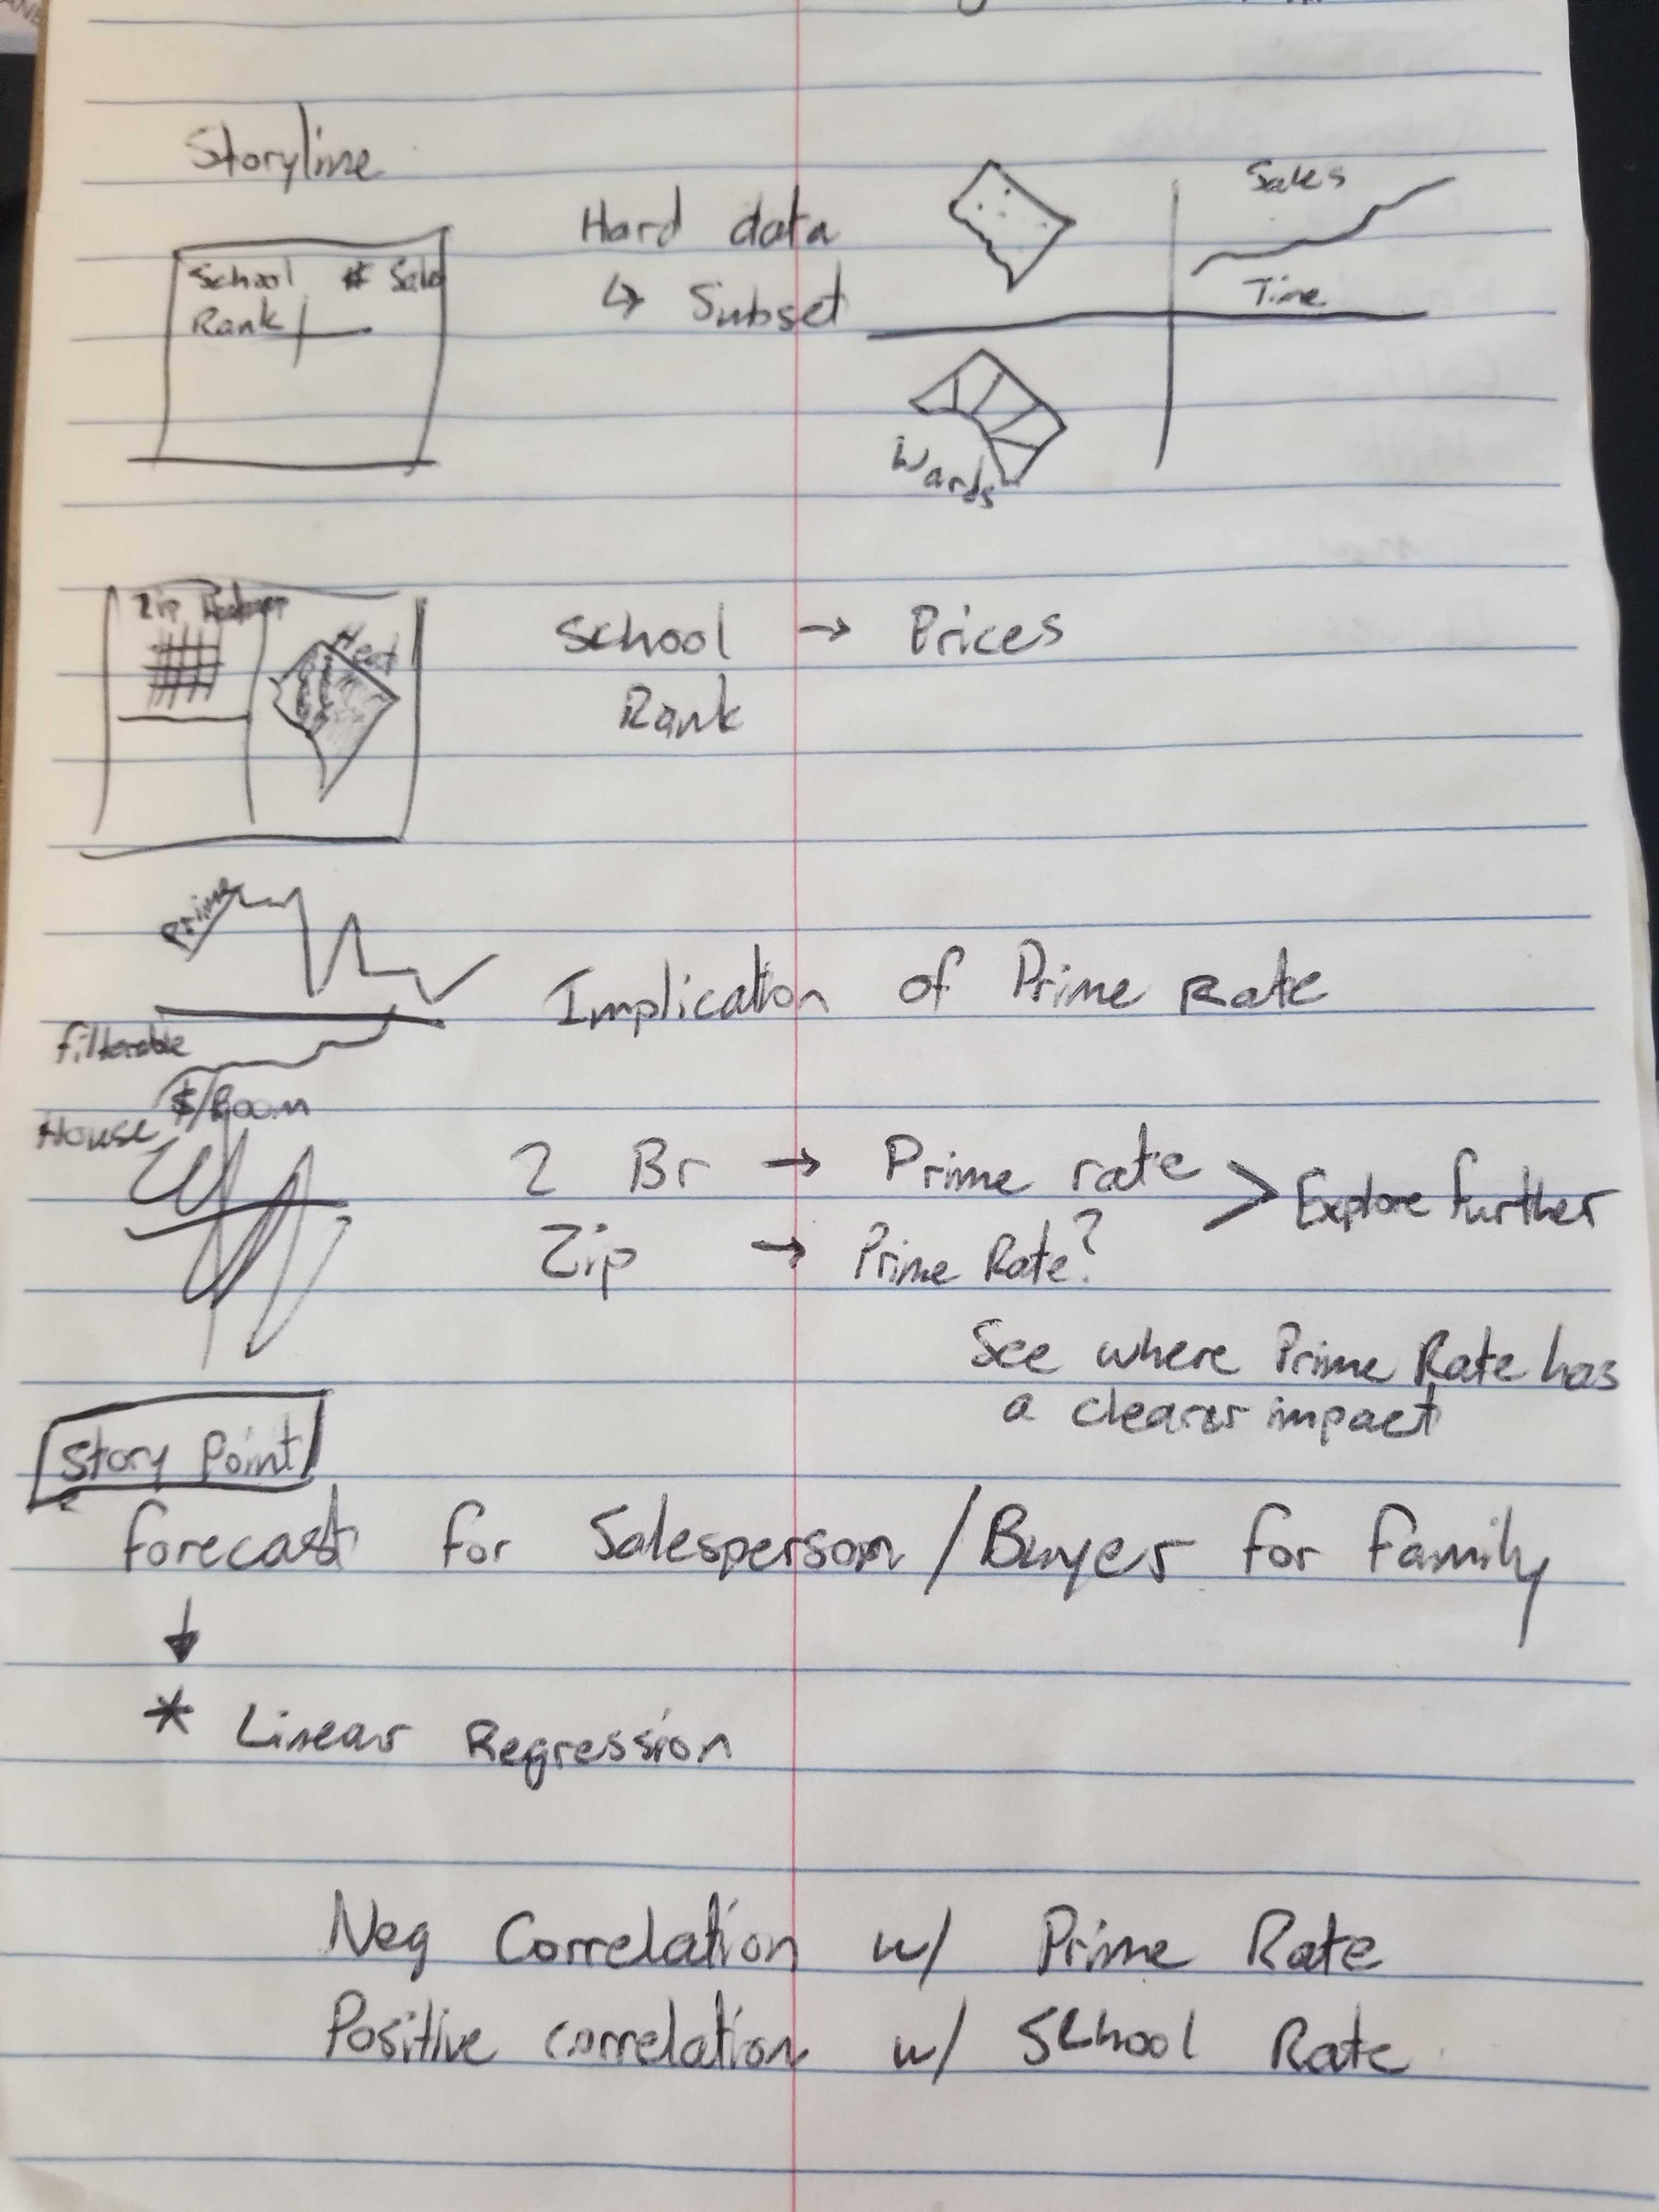 Storyline
School # Sale
Rank
Hard data
↳ Subset
Sales
Time
Wards
Zip
Heat
School → Prices
Rank
Prime
Implication of Prime Rate
filterable
$/Room
House
2 Br → Prime rate
Zip → Prime Rate?
> Explore further
See where Prime Rate has
a clearer impact
Story Point
forecast for Salesperson/Buyer for family
↓
* Linear Regression
Neg Correlation w/ Prime Rate
Positive correlation w/ School Rate